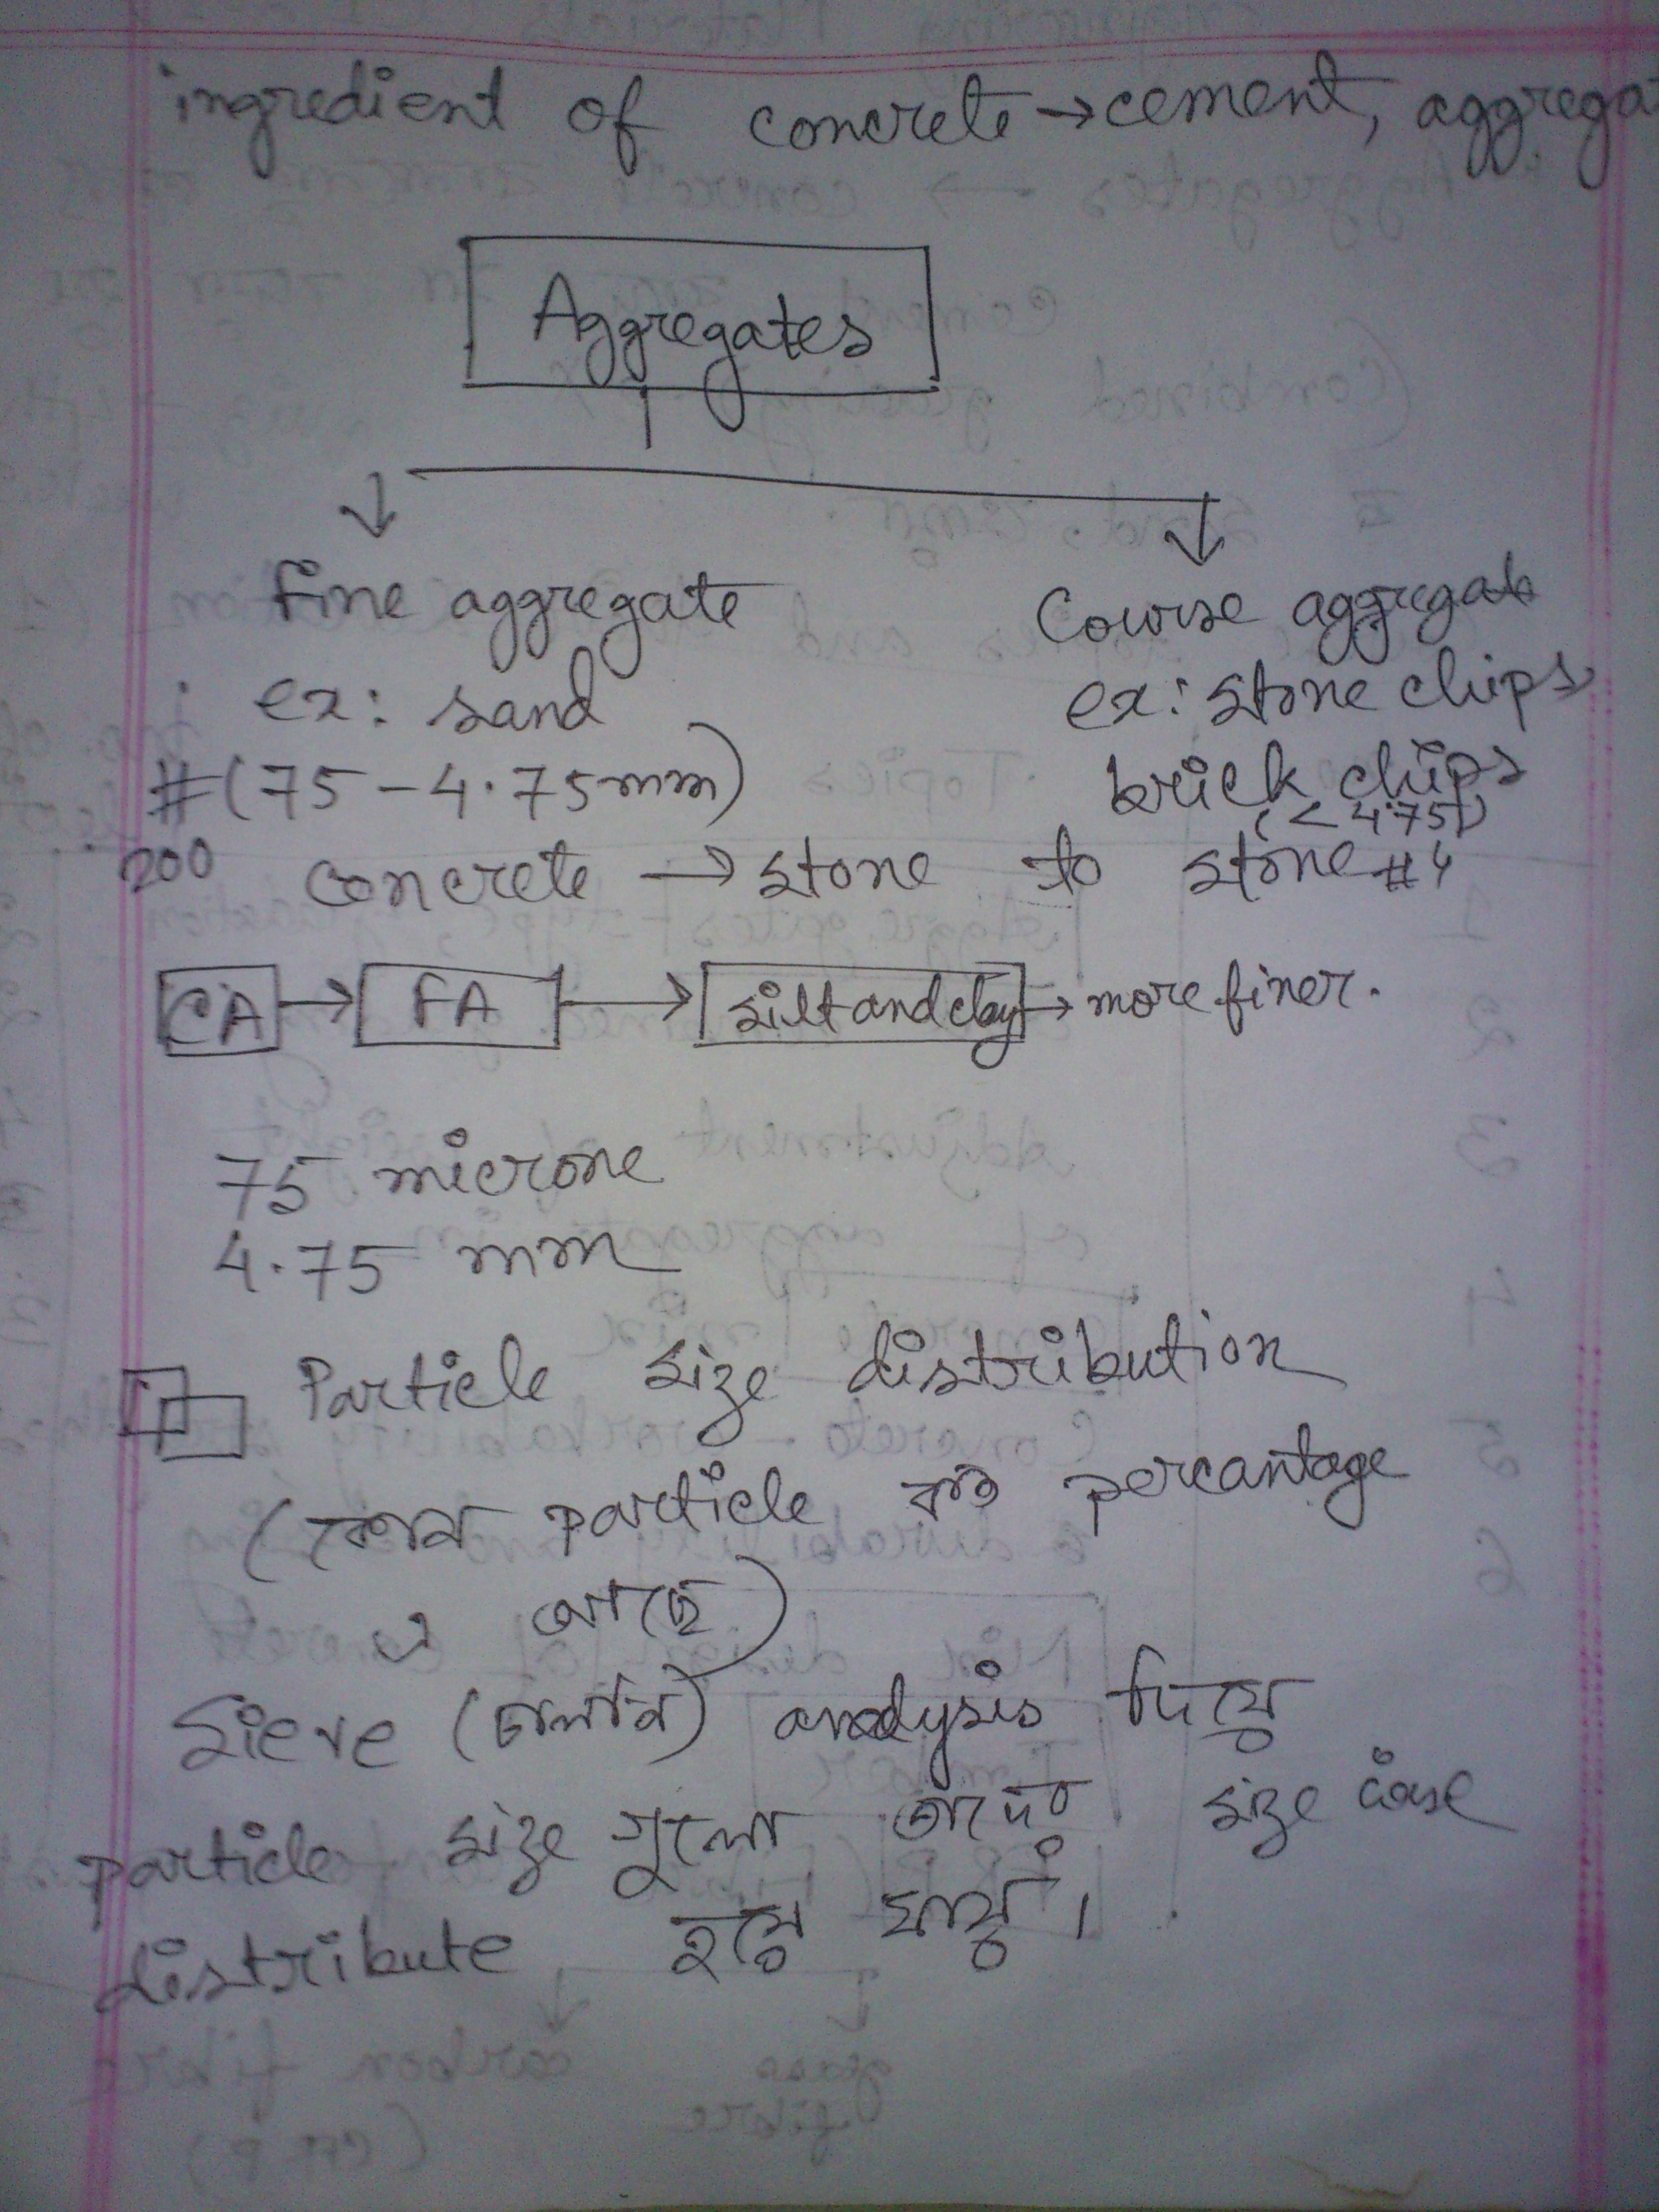 ingredient of concrete → cement, aggrega
Aggregates
Fine aggregate
Course aggregate
ex: sand
ex: stone chips
#(75 - 4.75mm)
brick chips
(< 4.75)
200 concrete → stone to stone #4
CA → FA → silt and clay → more finer.
75 microne
4.75 mm
Particle size distribution
(কোন particle কত percantage
এ আছে)
Sieve (চালনি) analysis দিয়ে
particle size গুলো তাদের size wise
distribute হয়ে যায়।